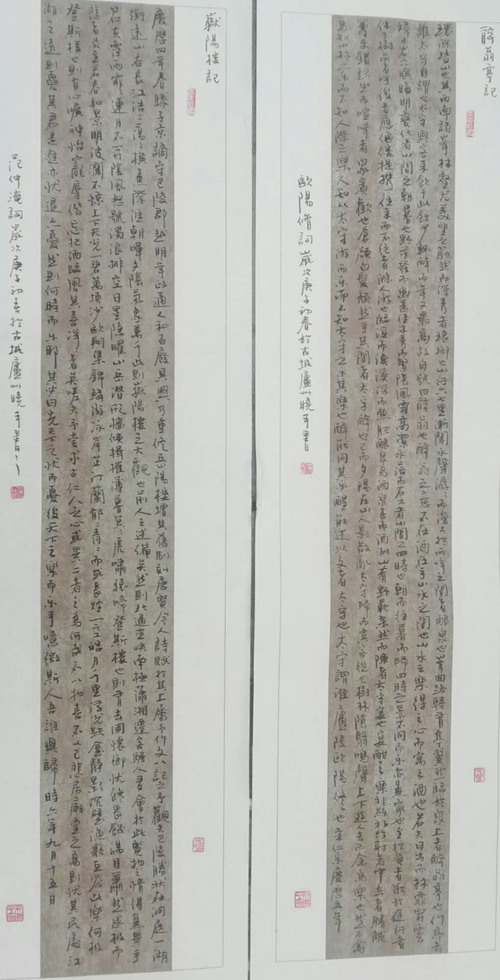 醉翁亭記
環滁皆山也其西南諸峯林壑尤美望之蔚然而深秀者琅琊也山行六七里漸聞水聲潺潺而瀉於兩峯之間者釀泉也峯回路轉有亭翼然臨於泉上者醉翁亭也作亭者
太守自謂也太守與客來飲於此飲少輒醉而年又最高故自號曰醉翁也醉翁之意不在酒在乎山水之間也山水之樂得之心而寓之酒也若夫日出而林霏開雲
晦明變化者山間之朝暮也野芳發而幽香佳木秀而繁陰風霜高潔水落而石出者山間之四時也朝而往暮而歸四時之景不同而樂亦無窮也至於負者歌於途行者
休於樹前者呼後者應傴僂提攜往來而不絕者滁人游也臨溪而漁溪深而魚肥釀泉為酒泉香而酒洌山肴野蔌雜然而前陳者太守宴也宴酣之樂非絲非竹射者中弈者勝觥
籌交錯起坐而喧嘩者眾賓歡也蒼顏白髮頹然乎其間者太守醉也已而夕陽在山人影散亂太守歸而賓客從也樹林陰翳鳴聲上下遊人去而禽鳥樂也然而禽
鳥知山林之樂而不知人之樂人知從太守游而樂而不知太守之樂其樂也醉能同其樂醒能述以文者太守也太守謂誰廬陵歐陽修也宋仁宗慶曆五年
歐陽脩詞歲次庚子初春於古城廬州曉年書
嶽陽樓記
慶曆四年春滕子京謫守巴陵郡越明年政通人和百廢具興乃重修岳陽樓增其舊制刻唐賢今人詩賦於其上屬予作文以記之予觀夫巴陵勝狀在洞庭一湖
銜遠山吞長江浩浩湯湯橫無際涯朝暉夕陰氣象萬千此則岳陽樓之大觀也前人之述備矣然則北通巫峽南極瀟湘遷客騷人多會於此覽物之情得無異乎
若夫霪雨霏霏連月不開陰風怒號濁浪排空日星隱曜山岳潛形檣傾楫摧薄暮冥冥虎嘯猿啼登斯樓也則有去國懷鄉憂讒畏譏滿目蕭然感極而
悲者矣至若春和景明波瀾不驚上下天光一碧萬頃沙鷗翔集錦鱗游泳岸芷汀蘭郁郁青青而或長煙一空皓月千里浮光躍金靜影沉璧漁歌互答此樂何極
登斯樓也則有心曠神怡寵辱偕忘把酒臨風其喜洋洋者矣嗟夫予嘗求古仁人之心或異二者之為何哉不以物喜不以己悲居廟堂之高則憂其民處江
湖之遠則憂其君是進亦憂退亦憂然則何時而樂耶其必曰先天下之憂而憂後天下之樂而樂乎噫微斯人吾誰與歸時六年九月十五日
范仲淹詞歲次庚子初春於古城廬州曉年書